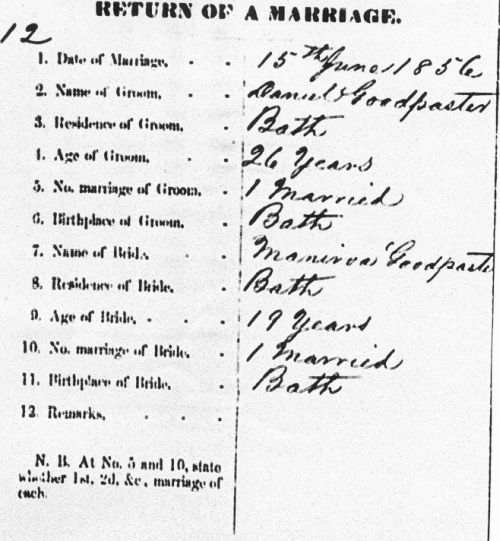 RETURN OF A MARRIAGE.
12
1. Date of Marriage, - - 15th June 1856
2. Name of Groom, - - Daniel Goodpaster
3. Residence of Groom, - Bath
4. Age of Groom, - - 26 Years
5. No. marriage of Groom, - 1 Married
6. Birthplace of Groom, - Bath
7. Name of Bride - - Manirva Goodpaste
8. Residence of Bride, - Bath
9. Age of Bride, - - - 19 Years
10. No. marriage of Bride, - 1 Married
11. Birthplace of Bride, - Bath
12. Remarks, - - -
N. B. At No. 5 and 10, state
whether 1st, 2d, &c, marriage of
each.